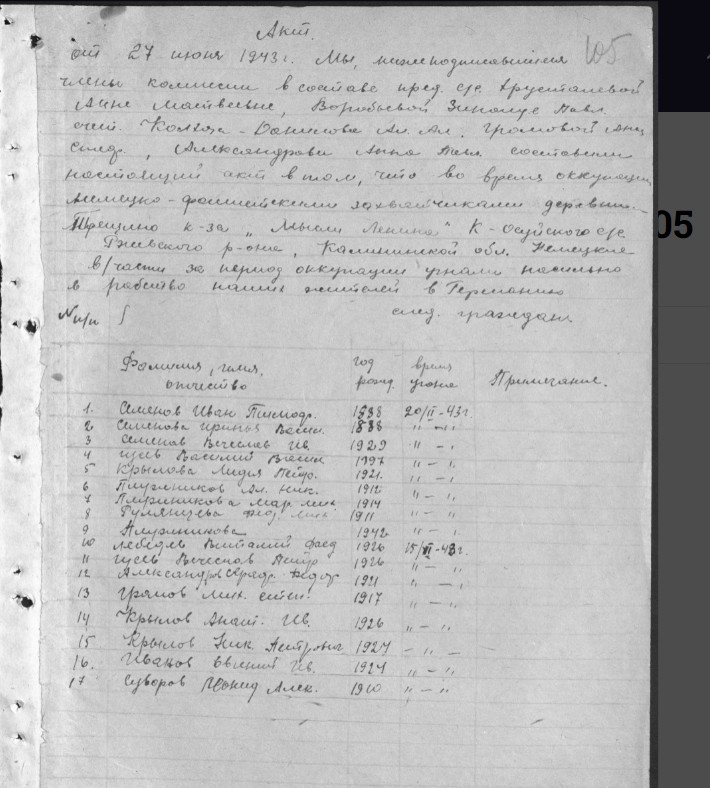 Акт. 105
от 27 июня 1943 г. Мы, нижеподписавшиеся
члены комиссии в составе пред. с/с Хрусталевой
Анне Матвеевне, Воробьевой Зинаиде Павл.
счет. Колхоза - Данилова Ал. Ал. Громовой
Александрова Анна Павл. составили
настоящий акт в том, что во время оккупации
немецко-фашистскими захватчиками деревни
к-за „Мысли Ленина" К- с/с
Ржевского р-она, Калининской обл. Немецкие
в/части за период оккупации угнали насильно
в рабство наших жителей в Германию
след. граждан.
05
№ п/п
Фамилия, имя, отчество год рожд. время угона Примечание.
1. Семенов Иван 20/II-43 г.
2 Семенова Васил. 1888 " - "
3 Семенов Вячеслав Ив. 1929 " - "
4 Гусев Василий 1897 " - "
5 Крылова Лидия Петр. 1921 " - "
6 Ал. Ник. 1912 " - "
7 Мар. 1914
8 Румянцева Фед. 1911 " - "
9 1942 " - "
10 Лебедев Виталий Фед 1926 15/ -43 г.
11 Гусев Вячеслав Петр 1926 " - "
12 Александров 1921 " - "
13 Громов Мих. 1917 " - "
14 Крылов Анат. Ив. 1926 " - "
15 Крылов Ник 1924 " - "
16. Иванов Евгений Ив. 1924 " - "
17 Суворов Леонид Алек. 1910 " - "